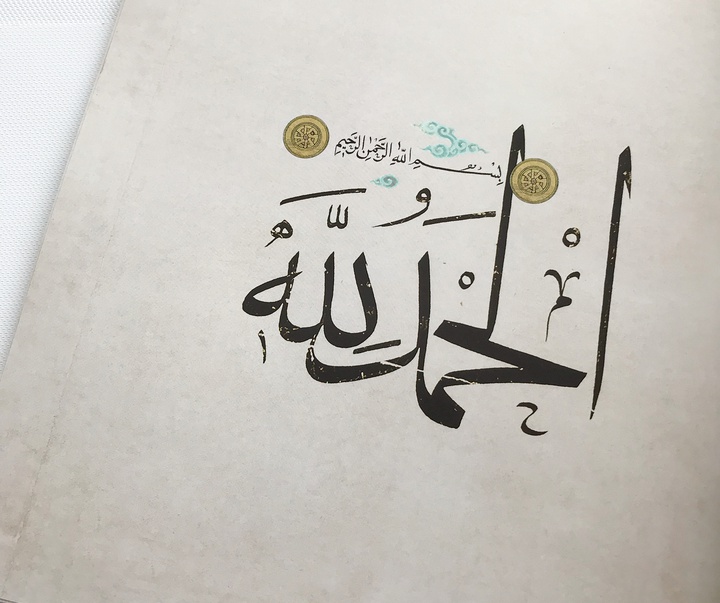 بِسْمِ اللّٰهِ الرَّحْمٰنِ الرَّحِيمِ
الْحَمْدُ لِلّٰهِ